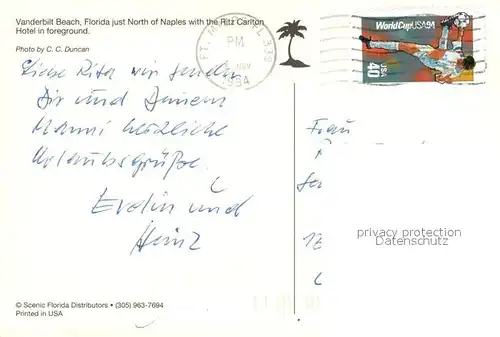 Vanderbilt Beach, Florida just North of Naples with the Ritz Carlton
Hotel in foreground.
Photo by C. C. Duncan
FT. M FL 339
PM
NOV
1994
World Cup USA 94
40
USA
Liebe Rita wir senden
Dir und Deinem
Manni herzliche
Urlaubsgrüße.
Evelin und
Heinz
Frau
privacy protection
Datenschutz
© Scenic Florida Distributors • (305) 963-7694
Printed in USA